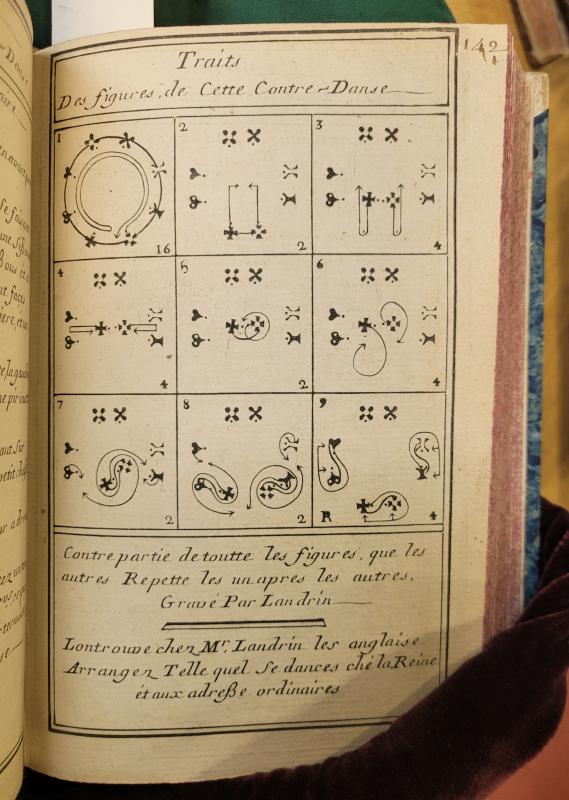 142
Traits
Des figures, de Cette Contre-Danse
1
2
3
16
2
4
4
5
6
4
2
4
7
8
9
2
2
R
4
Contre partie de toutte les figures, que les
autres Repette les un apres les autres,
Gravé Par Landrin
Lontrouve chez Mr. Landrin les anglaise
Arrangez Telle quel se dances ché la Reine
et aux adreße ordinaires